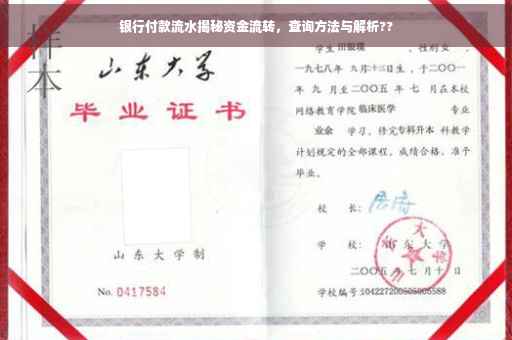 银行付款流水揭秘资金流转，查询方法与解析??
样本
山东大学
毕业证书
山东大学制
No. 0417584
学生
，性别女，
一九七八年 九月十三日生，于二〇〇一
年 九 月至二〇〇五 年 七 月在本校
网络教育学院临床医学 专业
业余 学习，修完专科升本 科教学
计划规定的全部课程，成绩合格，准予
毕业。
校 长：
学 校： 山东大学
二〇〇五 年 七 月 十 日
学校编号:104227200505005588